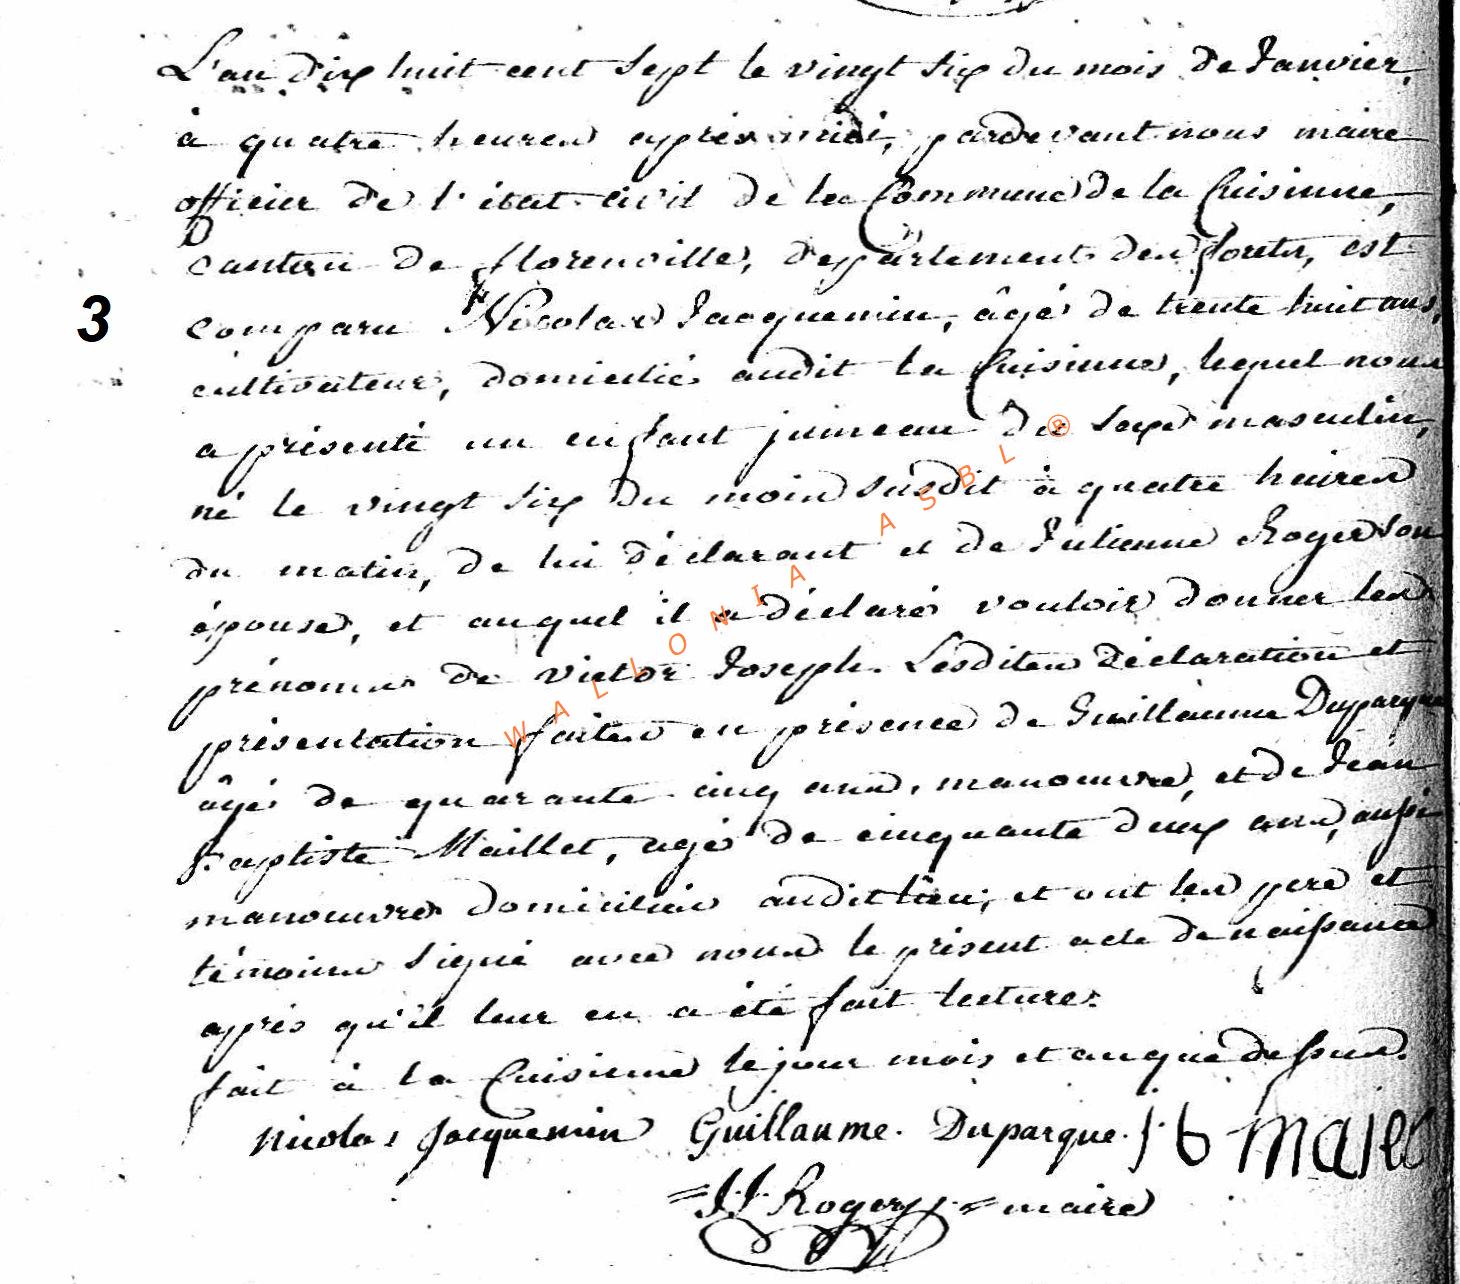 L'an dix huit cent sept le vingt six du mois de Janvier,
à quatre heures après midi, pardevant nous maire
officier de l'état civil de la Commune de la Cuisinne,
canton de florenville, département des forets, est
3
comparu Nicolas Jacquemin, âgé de trente huit ans,
cultivateur, domicilié audit la Cuisinne, lequel nous
a présenté un enfant jumeau du sexe masculin,
né le vingt six du mois susdit à quatre heures
du matin, de lui déclarant et de Julienne Roger son
épouse, et auquel il a déclaré vouloir donner les
prénoms de Victor Joseph. Lesdites déclaration et
présentation faites en présence de Guillaume Duparque
âgé de quarante cinq ans, manouvre, et de Jean
Baptiste Maillet, agé de cinquante deux ans, aussi
manouvre domiciliés audit lieu, et ont les pere et
témoins signé avec nous le présent acte de naissance
après qu'il leur en a été fait lecture.
fait à la Cuisinne le jour mois et an que dessus.
nicolas jacquemin Guillaume. Duparque. J b
=J.J. Roger = maire
WALLONIA ASBL ®